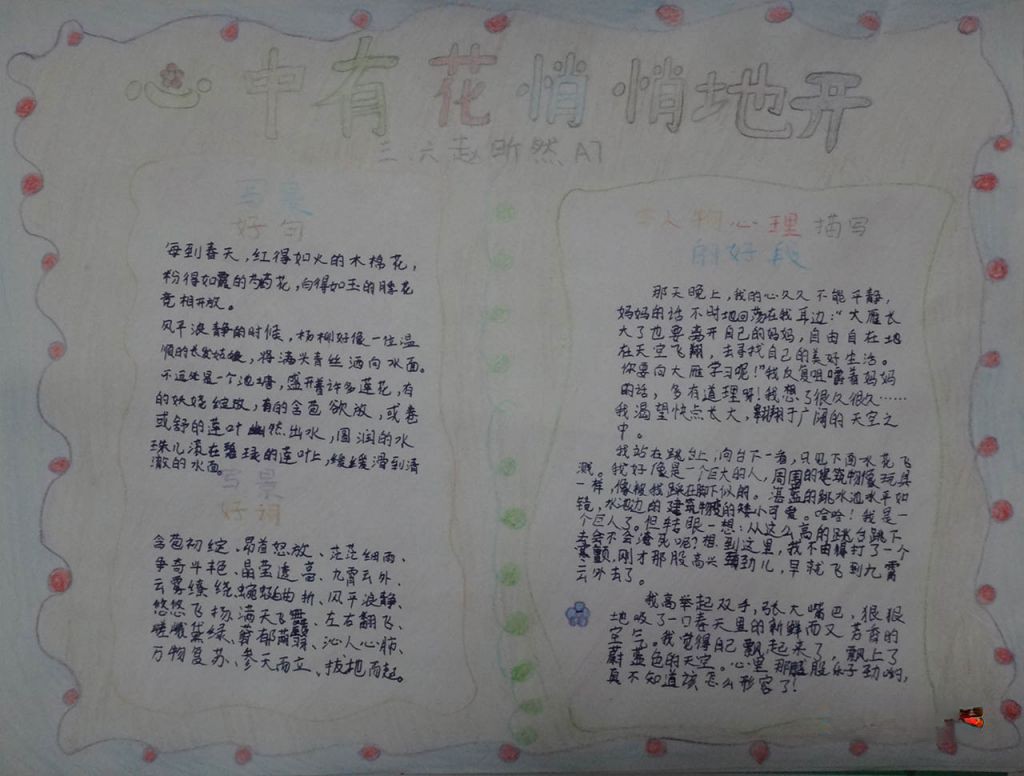 心中有花悄悄地开
三、六赵昕然 A7
写景
好句
每到春天，红得如火的木棉花，
粉得如霞的芍药花，白得如玉的月季花
竞相开放。
风平浪静的时候，杨柳好像一位温
顺的长发姑娘，将满头青丝洒向水面。
不远处是一个池塘，盛开着许多莲花，有
的妖娆绽放，有的含苞欲放，或卷
或舒的莲叶幽然出水，圆润的水
珠儿滚在碧绿的莲叶上，缓缓滑到清
澈的水面。
写景
好词
含苞初绽、昂首怒放、茫茫细雨、
争奇斗艳、晶莹透亮、九霄云外、
云雾缭绕、蜿蜒曲折、风平浪静、
悠悠飞扬、满天飞霞、左右翻飞、
嵯峨黛绿、蓊郁荫翳、沁人心肺、
万物复苏、参天而立、拔地而起。
写人物心理描写
的好段
那天晚上，我的心久久不能平静，
妈妈的话不时地回荡在我耳边：“大雁长
大了也要离开自己的妈妈，自由自在地
在天空飞翔，去寻找自己的美好生活。
你要向大雁学习呢！”我反复咀嚼着妈妈
的话，多有道理呀！我想了很久很久……
我渴望快点长大，翱翔于广阔的天空之
中。
我站在跳台上，向台下一看，只见下面水花飞
溅。我好像是一个巨大的人，周围的建筑物像玩具
一样，像被我踩在脚下似的。湛蓝的跳水池水平如
镜，水池边的建筑物变的矮小可爱。哈哈！我是一
个巨人了。但转眼一想：从这么高的跳台跳下
去会不会淹死呢？想到这里，我不由得打了一个
寒颤，刚才那股高兴劲儿，早就飞到九霄
云外去了。
我高举起双手，张大嘴巴，狠狠
地吸了一口春天里的新鲜而又芳香的
空气。我觉得自己飘起来了，飘上了
蔚蓝色的天空。心里那股乐子劲哟，
真不知道该怎么形容了！